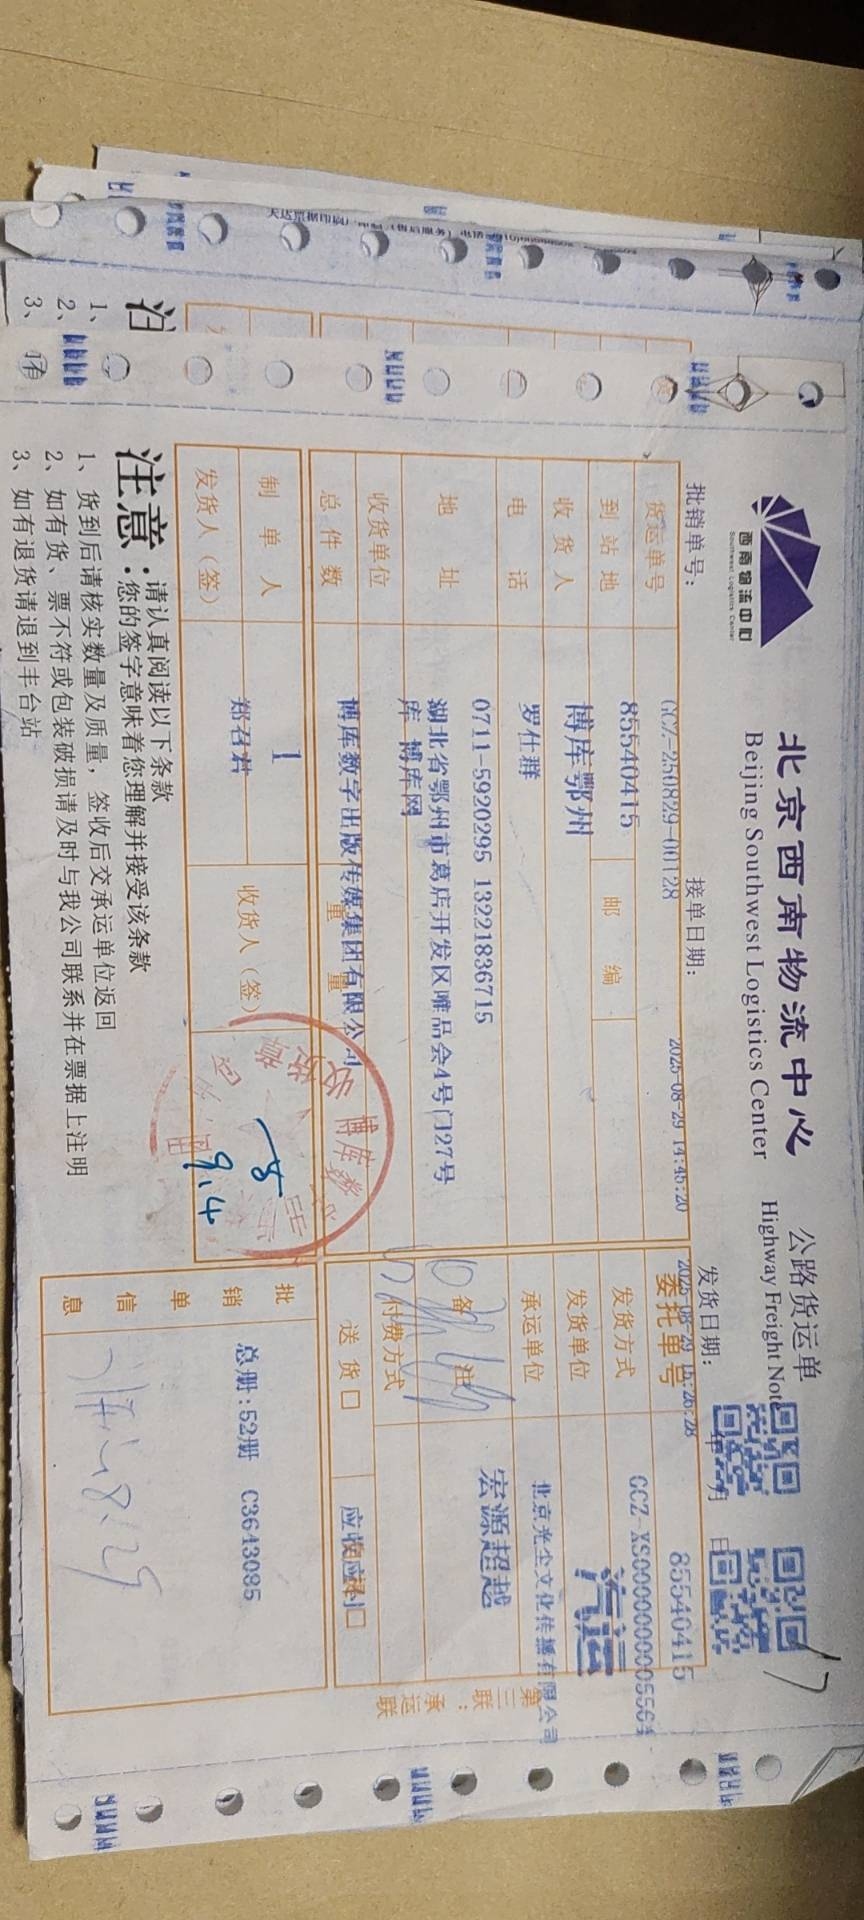 西南物流中心
Southwest Logistics Center
北京西南物流中心
Beijing Southwest Logistics Center
公路货运单
Highway Freight Note
批销单号：
接单日期：
2025-08-29 14:45:20
发货日期：
2025-08-29 15:26:28
年 月 日
货运单号
GCZ-250829-00128
委托单号
85540415
到站地
85540415
邮编
发货方式
GCZ-XS0000000005564
汽运
收货人
博库鄂州
发货单位
北京光尘文化传播有限公司
电话
罗仕群
承运单位
宏源超越
0711-5920295 13221836715
地址
湖北省鄂州市葛店开发区唯品会4号门27号
库 博库网
备注
收货单位
博库数字出版传媒集团有限公司
付费方式
总件数
重量
送货口
应收应付口
制单人
1
收货人（签）
发货人（签）
郑召君
9.4
批销单信息
总册：52册 C3643085
8.29
第三联：承运联
注意：
请认真阅读以下条款
您的签字意味着您理解并接受该条款
1、货到后请核实数量及质量，签收后交承运单位返回
2、如有货、票不符或包装破损请及时与我公司联系并在票据上注明
3、如有退货请退到丰台站
博库
收货章
17
注
1、
2、
3、